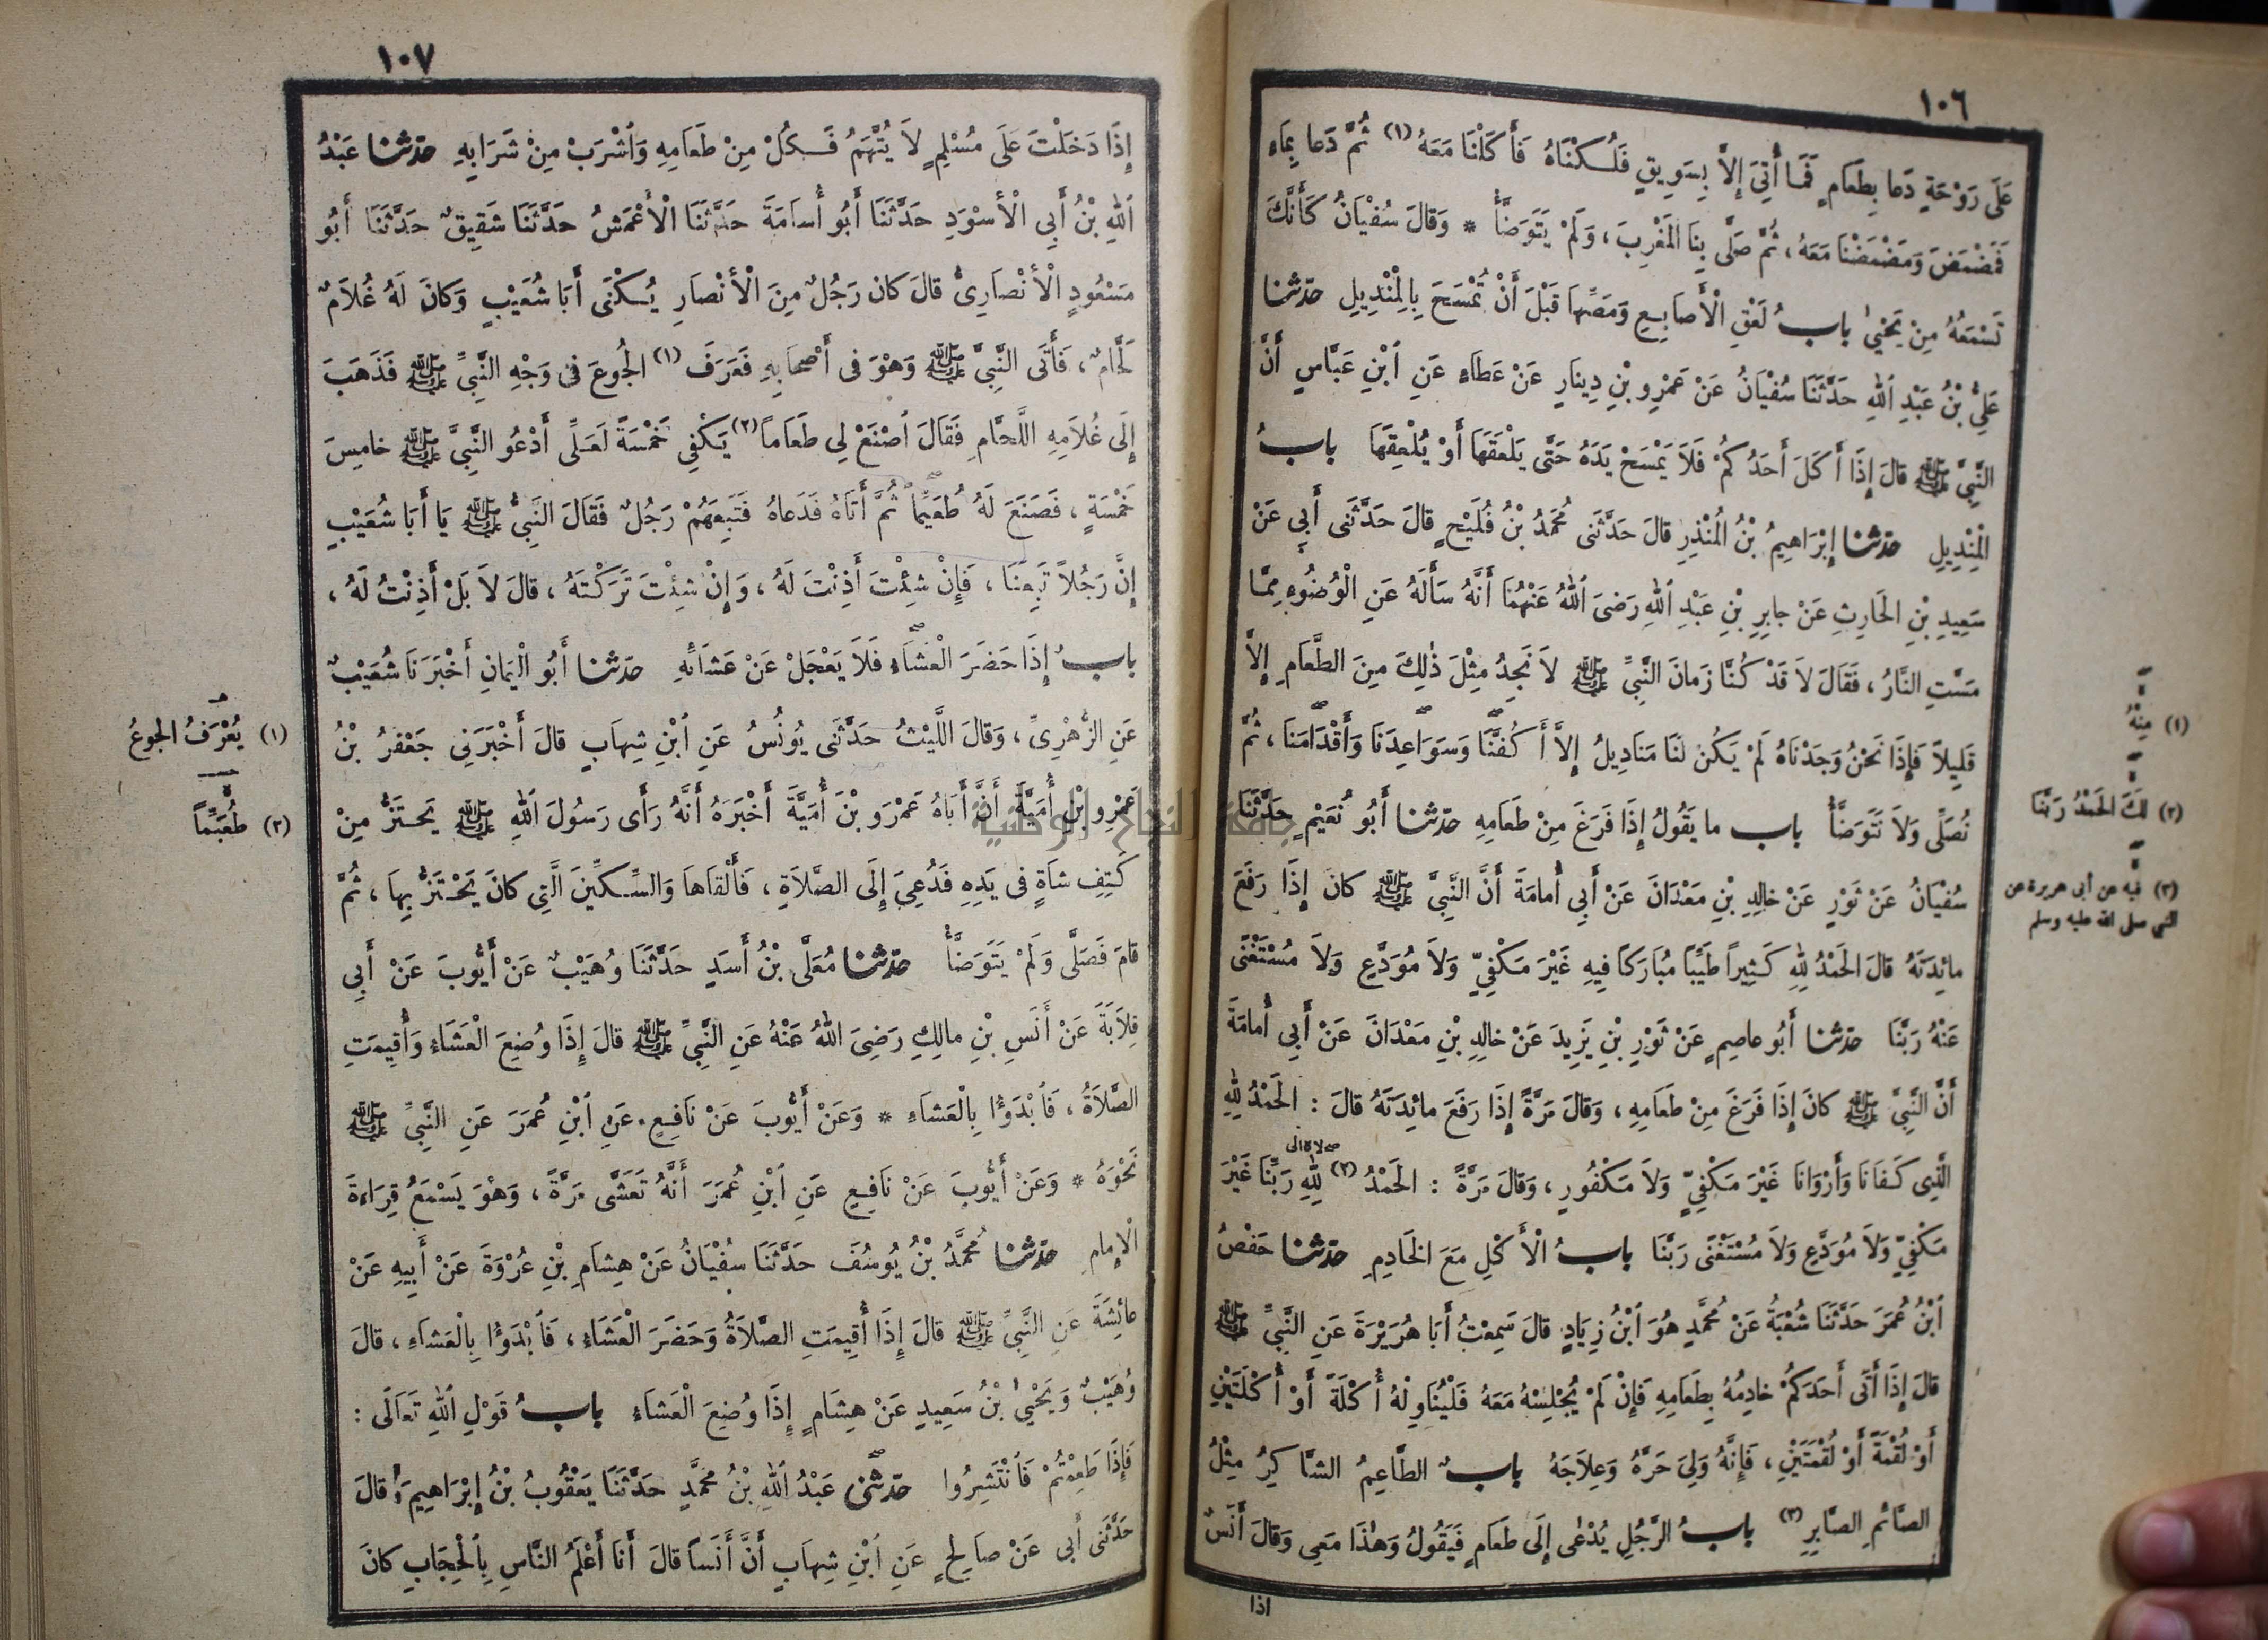 ١٠٦
عَلَى رَوْحَةٍ دَعا بِطَعَامٍ فَمَا أُتِيَ إِلاَّ بِسَوِيقٍ فَلُكْنَاهُ فَأَكَلْنَا مَعَهُ (١) ثُمَّ دَعا بِمَاءٍ
فَمَضْمَضَ وَمَضْمَضْنَا مَعَهُ ، ثُمَّ صَلَّى بِنَا المَغْرِبَ ، وَلَمْ يَتَوَضَّأْ * وَقالَ سُفْيَانُ كَأَنَّكَ
تَسْمَعُهُ مِنْ يَحْيٰى بابُ لَعْقِ الْأَصَابِعِ وَمَصِّهَا قَبْلَ أَنْ تُمْسَحَ بِالْمِنْدِيلِ حدّثنا
عَلِيُّ بْنُ عَبْدِ اللهِ حَدَّثَنَا سُفْيَانُ عَنْ عَمْرِو بْنِ دِينَارٍ عَنْ عَطَاءٍ عَنِ ابْنِ عَبَّاسٍ أَنَّ
النَّبِيَّ ﷺ قالَ إِذَا أَكَلَ أَحَدُكُمْ فَلاَ يَمْسَحْ يَدَهُ حَتَّى يَلْعَقَهَا أَوْ يُلْعِقَهَا بابُ
الْمِنْدِيلِ حدّثنا إِبْرَاهِيمُ بْنُ الْمُنْذِرِ قالَ حَدَّثَنِي مُحَمَّدُ بْنُ فُلَيْحٍ قالَ حَدَّثَنِي أَبِي عَنْ
سَعِيدِ بْنِ الحَارِثِ عَنْ جابِرِ بْنِ عَبْدِ اللهِ رَضِيَ اللهُ عَنْهُمَا أَنَّهُ سَأَلَهُ عَنِ الْوُضُوءِ مِمَّا
مَسَّتِ النَّارُ ، فَقَالَ لاَ قَدْ كُنَّا زَمانَ النَّبِيِّ ﷺ لاَ نَجِدُ مِثْلَ ذٰلِكَ مِنَ الطَّعَامِ إِلاَّ
قَلِيلاً فَإِذَا نَحْنُ وَجَدْنَاهُ لَمْ يَكُنْ لَنَا مَنَادِيلُ إِلاَّ أَكُفَّنَا وَسَوَاعِدَنَا وَأَقْدَامَنَا ، ثُمَّ
نُصَلِّي وَلاَ نَتَوَضَّأُ باب ما يَقُولُ إِذَا فَرَغَ مِنْ طَعَامِهِ حدّثنا أَبُو نُعَيْمٍ حَدَّثَنَا
سُفْيَانُ عَنْ ثَوْرٍ عَنْ خالِدِ بْنِ مَعْدَانَ عَنْ أَبِي أُمامَةَ أَنَّ النَّبِيَّ ﷺ كانَ إِذَا رَفَعَ
مائِدَتَهُ قالَ الحَمْدُ لِلهِ كَثِيراً طَيِّبًا مُبَارَكاً فِيهِ غَيْرَ مَكْفِيٍّ وَلاَ مُوَدَّعٍ وَلاَ مُسْتَغْنًى
عَنْهُ رَبَّنَا حدّثنا أَبُو عاصِمٍ عَنْ ثَوْرِ بْنِ يَزِيدَ عَنْ خالِدِ بْنِ مَعْدَانَ عَنْ أَبِي أُمامَةَ
أَنَّ النَّبِيَّ ﷺ كانَ إِذَا فَرَغَ مِنْ طَعَامِهِ ، وَقالَ مَرَّةً إِذَا رَفَعَ مائِدَتَهُ قالَ : الحَمْدُ لِلهِ
الَّذِي كَفَانَا وَأَرْوَانَا غَيْرَ مَكْفِيٍّ وَلاَ مَكْفُورٍ ، وَقالَ مَرَّةً : الحَمْدُ (٢) لِلهِ رَبِّنَا غَيْرَ
مَكْفِيٍّ وَلاَ مُوَدَّعٍ وَلاَ مُسْتَغْنًى رَبَّنَا بابُ الْأَكْلِ مَعَ الخَادِمِ حدّثنا حَفْصُ
ابْنُ عُمَرَ حَدَّثَنَا شُعْبَةُ عَنْ مُحَمَّدٍ هُوَ ابْنُ زِيَادٍ قالَ سَمِعْتُ أَبَا هُرَيْرَةَ عَنِ النَّبِيِّ ﷺ
قالَ إِذَا أَتَى أَحَدَكُمْ خادِمُهُ بِطَعَامِهِ فَإِنْ لَمْ يُجْلِسْهُ مَعَهُ فَلْيُنَاوِلْهُ أُكْلَةً أَوْ أُكْلَتَيْنِ
أَوْ لُقْمَةً أَوْ لُقْمَتَيْنِ ، فَإِنَّهُ وَلِيَ حَرَّهُ وَعِلاَجَهُ بابٌ الطَّاعِمُ الشَّاكِرُ مِثْلُ
الصَّائِمِ الصَّابِرِ (٣) بابُ الرَّجُلِ يُدْعٰى إِلَى طَعَامٍ فَيَقُولُ وَهٰذَا مَعِي وَقالَ أَنَسٌ
اذا
(١) مِنْهُ
(٢) لَكَ الحَمْدُ رَبَّنَا
(٣) فيه عن أبى هريرة عن
النبي صلى الله عليه وسلم
١٠٧
إِذَا دَخَلْتَ عَلَى مُسْلِمٍ لاَ يُتَّهَمُ فَكُلْ مِنْ طَعَامِهِ وَاشْرَبْ مِنْ شَرَابِهِ حدّثنا عَبْدُ
اللهِ بْنُ أَبِي الْأَسْوَدِ حَدَّثَنَا أَبُو أُسَامَةَ حَدَّثَنَا الْأَعْمَشُ حَدَّثَنَا شَقِيقٌ حَدَّثَنَا أَبُو
مَسْعُودٍ الْأَنْصَارِيُّ قالَ كانَ رَجُلٌ مِنَ الْأَنْصَارِ يُكْنَى أَبَا شُعَيْبٍ وَكانَ لَهُ غُلاَمٌ
لَحَّامٌ ، فَأَتَى النَّبِيَّ ﷺ وَهْوَ فِي أَصْحَابِهِ فَعَرَفَ (١) الجُوعَ فِي وَجْهِ النَّبِيِّ ﷺ فَذَهَبَ
إِلَى غُلاَمِهِ اللَّحَّامِ فَقَالَ اصْنَعْ لِي طَعَاماً (٢) يَكْفِي خَمْسَةً لَعَلِّي أَدْعُو النَّبِيَّ ﷺ خامِسَ
خَمْسَةٍ ، فَصَنَعَ لَهُ طُعَيِّماً ثُمَّ أَتَاهُ فَدَعاهُ فَتَبِعَهُمْ رَجُلٌ فَقَالَ النَّبِيُّ ﷺ يَا أَبَا شُعَيْبٍ
إِنَّ رَجُلاً تَبِعَنَا ، فَإِنْ شِئْتَ أَذِنْتَ لَهُ ، وَإِنْ شِئْتَ تَرَكْتَهُ ، قالَ لاَ بَلْ أَذِنْتُ لَهُ ،
بابٌ إِذَا حَضَرَ الْعَشَاءُ فَلاَ يَعْجَلْ عَنْ عَشَائِهِ حدّثنا أَبُو الْيَمَانِ أَخْبَرَنَا شُعَيْبٌ
عَنِ الزُّهْرِيِّ ، وَقالَ اللَّيْثُ حَدَّثَنِي يُونُسُ عَنِ ابْنِ شِهَابٍ قالَ أَخْبَرَنِي جَعْفَرُ بْنُ
عَمْرِو بْنِ أُمَيَّةَ أَنَّ أَبَاهُ عَمْرَو بْنَ أُمَيَّةَ أَخْبَرَهُ أَنَّهُ رَأَى رَسُولَ اللهِ ﷺ يَحْتَزُّ مِنْ
كَتِفِ شَاةٍ فِي يَدِهِ فَدُعِيَ إِلَى الصَّلاَةِ ، فَأَلْقَاهَا وَالسِّكِّينَ الَّتِي كانَ يَحْتَزُّ بِهَا ، ثُمَّ
قامَ فَصَلَّى وَلَمْ يَتَوَضَّأْ حدّثنا مُعَلَّى بْنُ أَسَدٍ حَدَّثَنَا وُهَيْبٌ عَنْ أَيُّوبَ عَنْ أَبِي
قِلاَبَةَ عَنْ أَنَسِ بْنِ مالِكٍ رَضِيَ اللهُ عَنْهُ عَنِ النَّبِيِّ ﷺ قالَ إِذَا وُضِعَ الْعَشَاءُ وَأُقِيمَتِ
الصَّلاَةُ ، فَابْدَؤُا بِالْعَشَاءِ * وَعَنْ أَيُّوبَ عَنْ نَافِعٍ عَنِ ابْنِ عُمَرَ عَنِ النَّبِيِّ ﷺ
نَحْوَهُ * وَعَنْ أَيُّوبَ عَنْ نَافِعٍ عَنِ ابْنِ عُمَرَ أَنَّهُ تَعَشَّى مَرَّةً ، وَهْوَ يَسْمَعُ قِرَاءَةَ
الْإِمامِ حدّثنا مُحَمَّدُ بْنُ يُوسُفَ حَدَّثَنَا سُفْيَانُ عَنْ هِشَامِ بْنِ عُرْوَةَ عَنْ أَبِيهِ عَنْ
عائِشَةَ عَنِ النَّبِيِّ ﷺ قالَ إِذَا أُقِيمَتِ الصَّلاَةُ وَحَضَرَ الْعَشَاءُ ، فَابْدَؤُا بِالْعَشَاءِ ، قالَ
وُهَيْبٌ وَيَحْيٰى بْنُ سَعِيدٍ عَنْ هِشَامٍ إِذَا وُضِعَ الْعَشَاءُ بابُ قَوْلِ اللهِ تَعَالَى :
فَإِذَا طَعِمْتُمْ فَانْتَشِرُوا حدّثنى عَبْدُ اللهِ بْنُ مُحَمَّدٍ حَدَّثَنَا يَعْقُوبُ بْنُ إِبْرَاهِيمَ قالَ
حَدَّثَنِي أَبِي عَنْ صَالِحٍ عَنِ ابْنِ شِهَابٍ أَنَّ أَنَسًا قالَ أَنَا أَعْلَمُ النَّاسِ بِالْحِجَابِ كانَ
(١) يُعْرَفُ الجوعُ
(٢) طُعَيِّماً
جامعة النجاح الوطنية